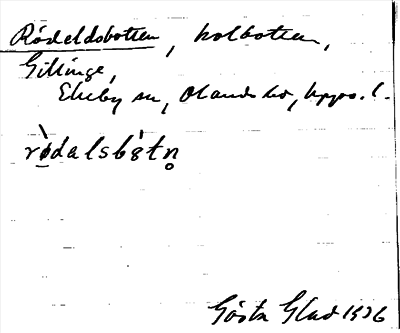 Rödeldsbotten, kolbotten,
Gillinge,
Ekeby sn, Olands hd, Upps. l.
rødalsbòtn̥
Gösta Glad 1936